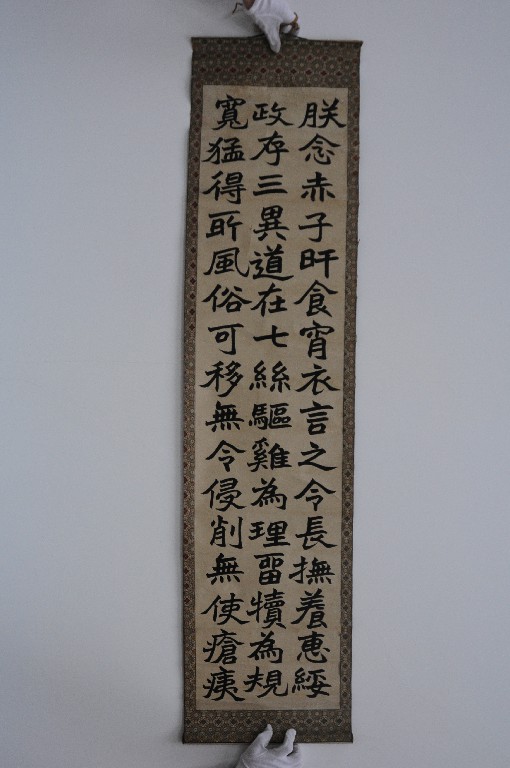 朕念赤子旰食宵衣言之令長撫養惠綏
政存三異道在七絲驅雞為理畱犢為規
寬猛得所風俗可移無令侵削無使瘡痍